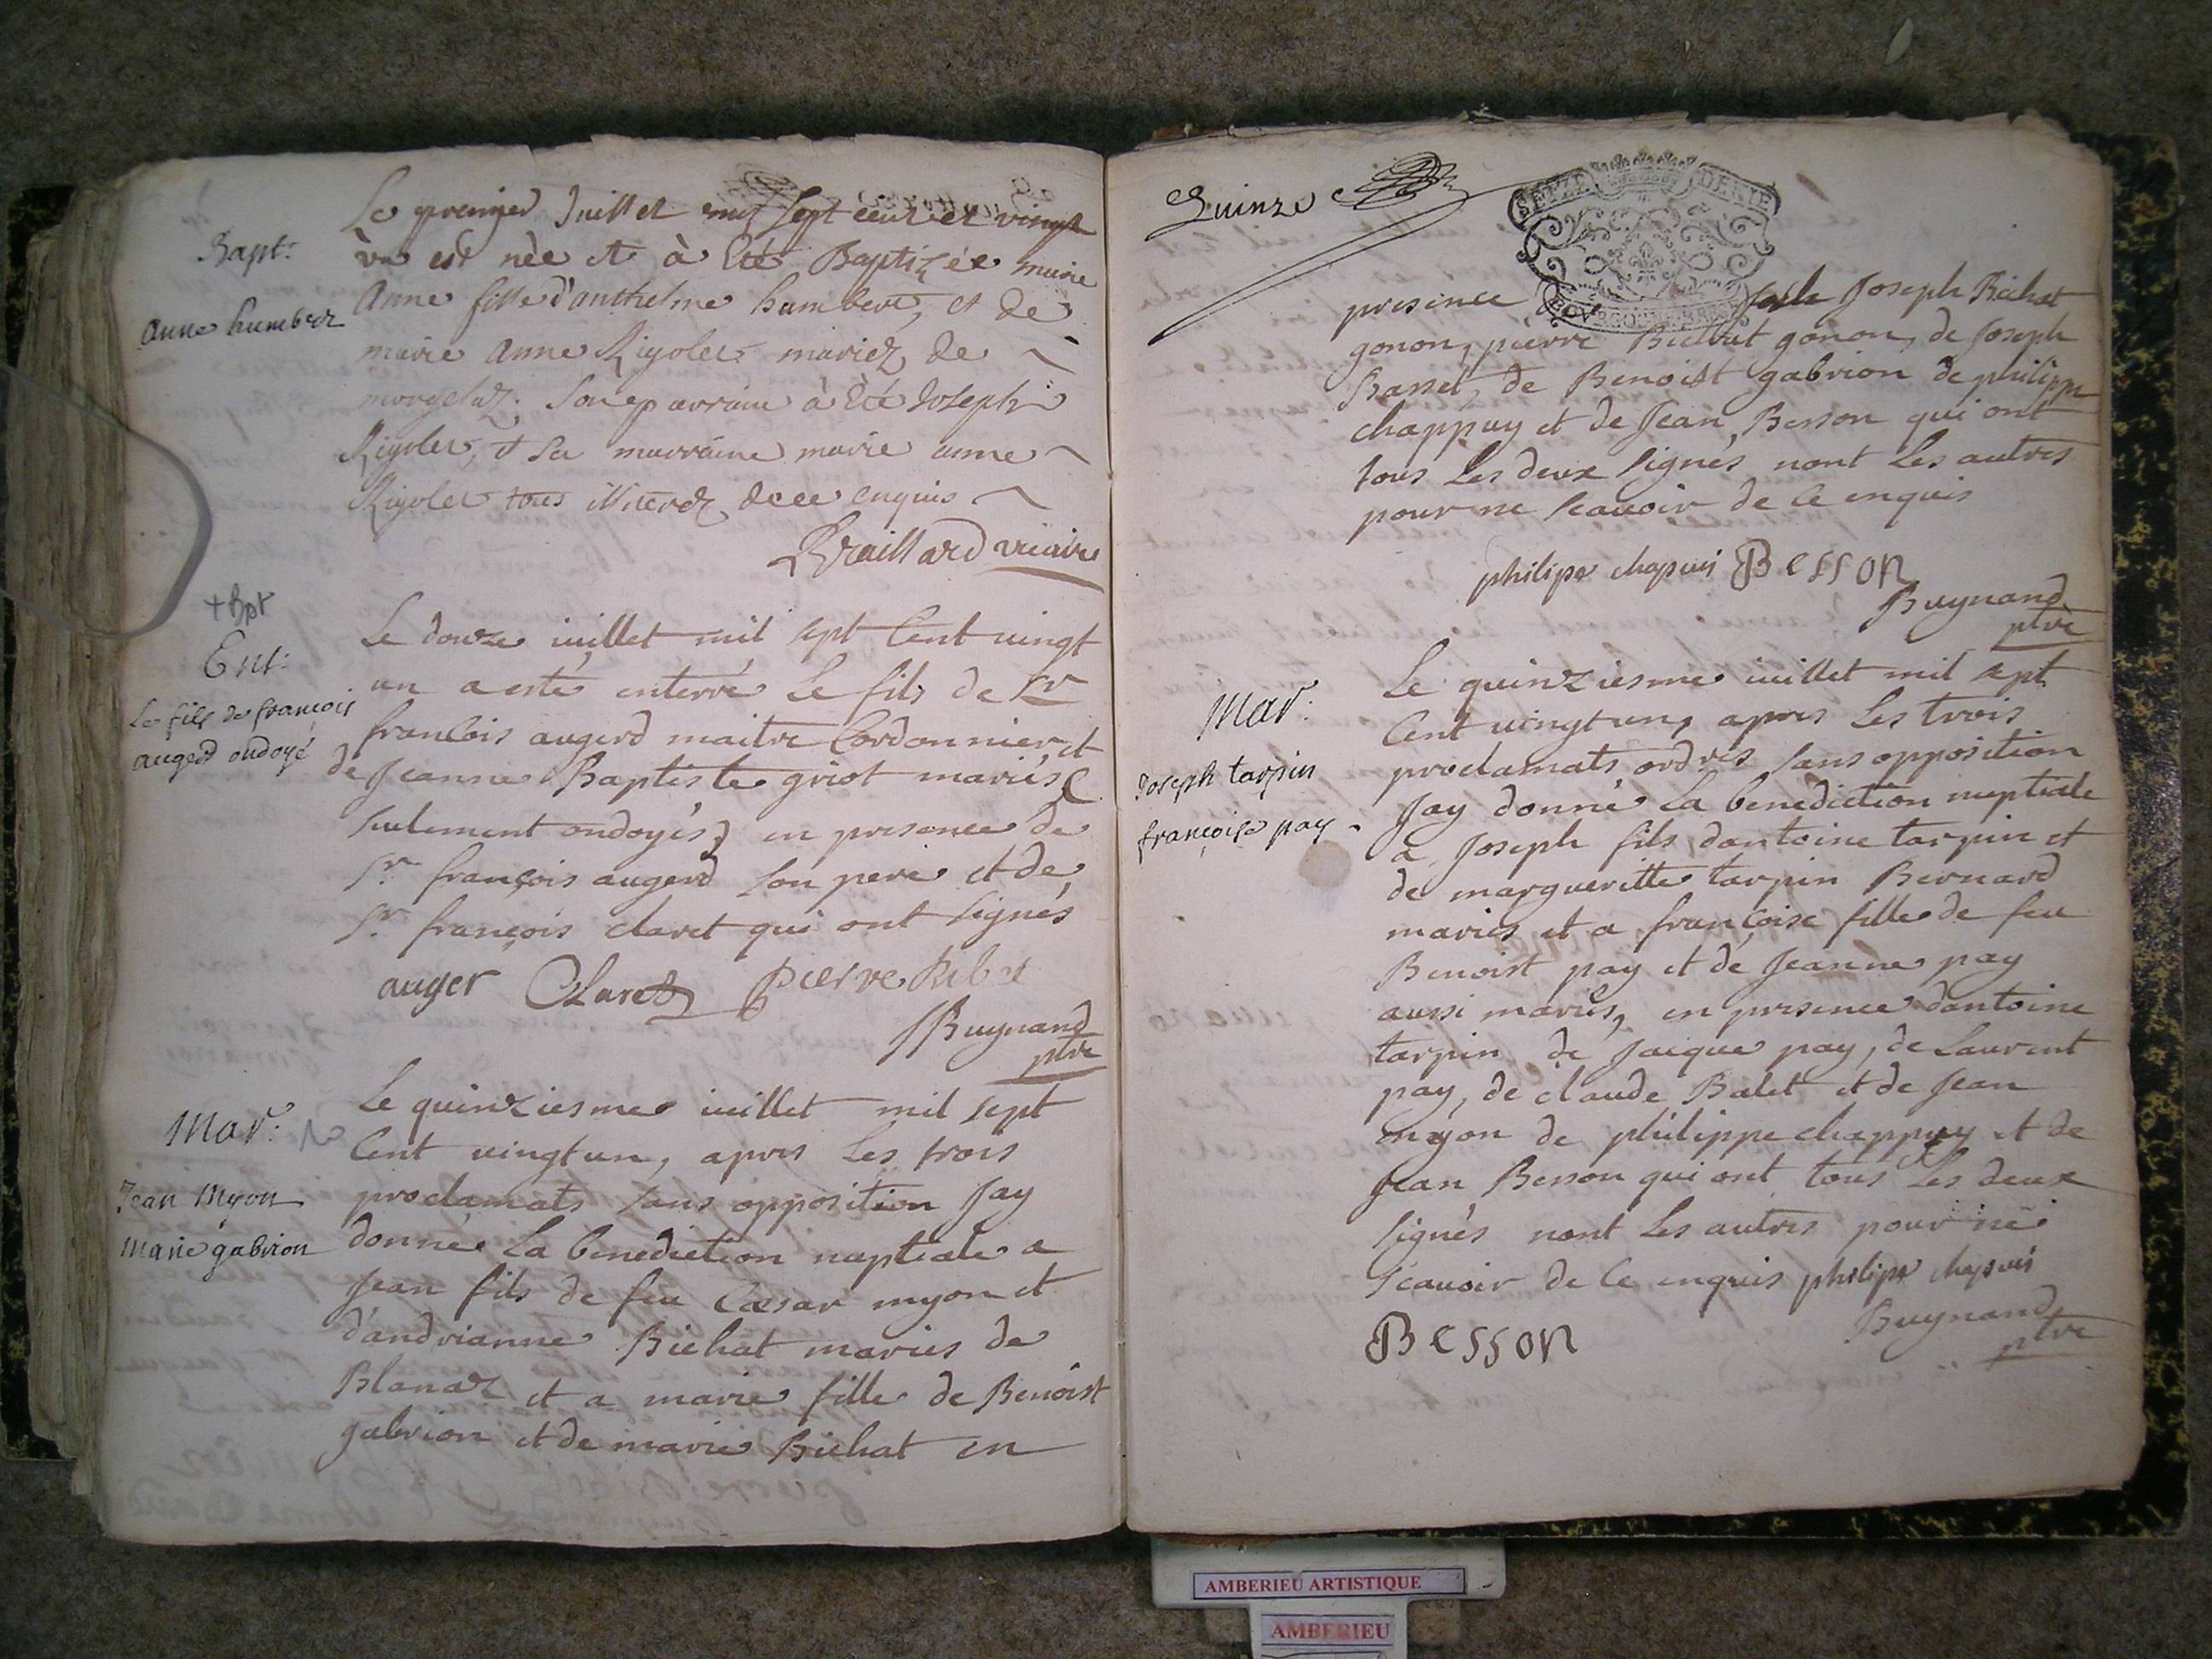 Bapt:
anne humbert
Le premier Juillet mil sept cent et vingt
vn est née et à Eté Baptizée marie
Anne fille d'anthelme humbert, et de
marie Anne Rigolet mariéz de
morgelaz. Son parrain à Eté Joseph
Rigolet, et sa marraine marie anne
Rigolet tous illiterez de ce enquis
Braillard vicaire
+ Bpt
Ent:
Le fils de françois
augerd ondoyé
Le douze iuillet mil sept Cent uingt
un a esté enterré Le fils de Sr
francois augerd maitre Cordonnier et
de Jeanne Baptiste griot mariés (
seulement ondoyés) en presence de
Sr. françois augerd son pere et de
Sr. françois claret qui ont signés
auger Claret pierre Ribet
Buynand
ptre
Mar:
Jean Myon
Marie gabrion
Le quinziesme iuillet mil sept
Cent uingt un, apres Les trois
proclamats sans opposition Jay
donné La benediction nuptiale a
Jean fils de feu Cæsar myon et
d'andrianne Bichat mariés de
Blanaz et a marie fille de Benoist
gabrion et de marie Bichat en
Quinze
SEIZE DENIE
presence de Joseph Bichat
gonon, pierre Bichat gonon, de Joseph
Basset, de Benoist gabrion de philippe
chappuy et de Jean Besson qui ont
tous Les deux signés nont Les autres
pour ne scauoir de Ce enquis
philipe chapuis Besson
Buynand
ptre
Mar:
Joseph tarpin
françoise pay
Le quinziesme iuillet mil sept
Cent uingt un, apres Les trois
proclamats ordres sans opposition
Jay donné La benediction nuptiale
a Joseph fils dantoine tarpin et
de margueritte tarpin Bernard
mariés et a françoise fille de feu
Benoist pay et de Jeanne pay
aussi mariés, en presence dantoine
tarpin de Jacque pay, de Laurent
pay, de claude Balet et de Jean
myon de philippe chappuy et de
Jean Besson qui ont tous Les deux
signés nont Les autres pour ne
scauoir de Ce enquis philipe chapuis
Besson
Buynand
ptre
AMBERIEU ARTISTIQUE
AMBERIEU